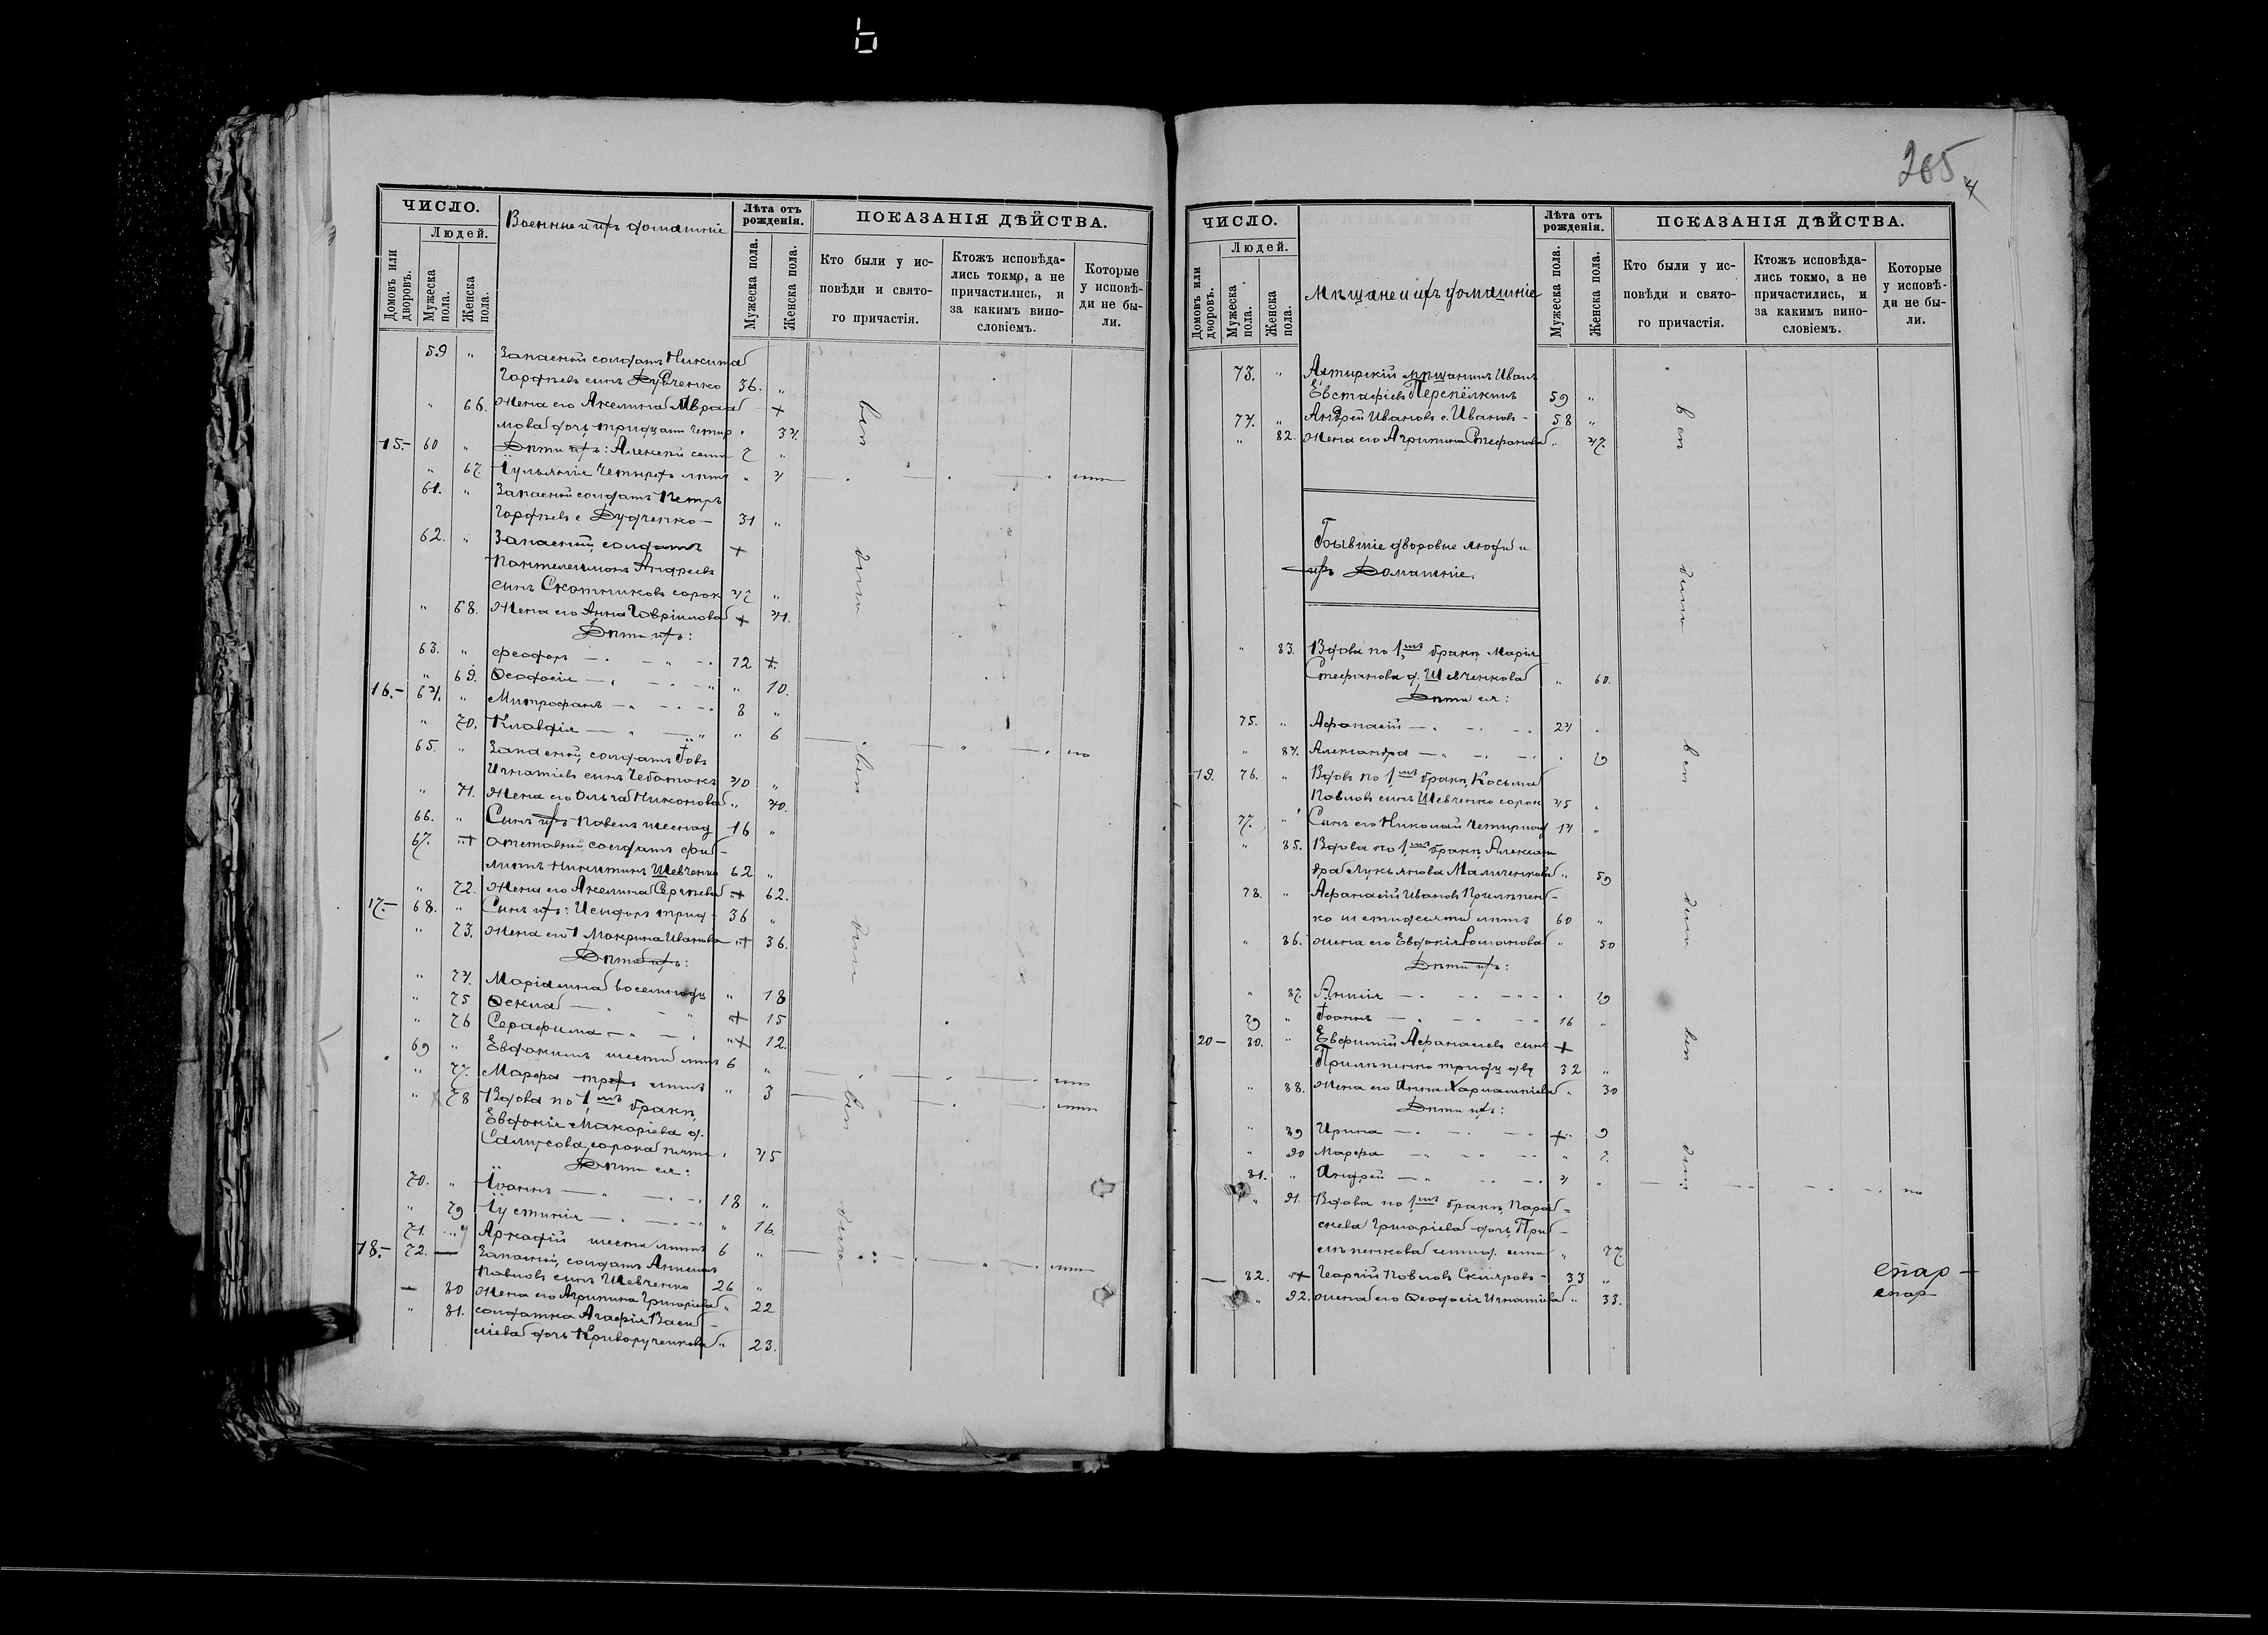 265
4
ЧИСЛО.
Людей.
Домовъ или дворовъ.
Мужеска пола.
Женска пола.
Военные и ихъ домашніе
Лѣта отъ рожденія.
Мужеска пола.
Женска пола.
ПОКАЗАНІЯ ДѢЙСТВА.
Кто были у исповѣди и святого причастія.
Ктожъ исповѣдались токмо, а не причастились, и за какимъ винословіемъ.
Которые у исповѣди не были.
59 " Запасный солдатъ Никита
Гордѣевъ сынъ Дудченко 36. "
" 66. Жена его Акелина Авраа +
мова дочь тридцати четыр " 34.
15.- 60 " Дѣти ихъ: Алексѣй семи 7 "
" 67. Іульянія четырехъ лѣтъ " 4
61. " Запасный солдатъ Петръ
Гордѣевъ с Дудченко - 31 "
62. " Запасный солдатъ +
Пантелеимонъ Андреевъ
сынъ Скотниковъ сорок 42 "
" 68. Жена его Анна Гавріилова + 41.
Дѣти ихъ:
63. " Феодоръ 12 +
" 69. Ѳеодосія " 10.
16.- 64. " Митрофанъ 8 "
" 70. Клавдія " 6
65. " Запасный солдатъ Іовъ
Игнатіевъ сынъ Чеботокъ 40 "
" 71. Жена его Ольга Никонова " 40.
66. " Сынъ ихъ Павелъ шестнад 16 "
67. + Отставный солдатъ Фи-
липпъ Никитинъ Шевченко 62 "
" 72. Жена его Акелина Сергѣева + 62.
17.- 68. " Сынъ ихъ: Исидоръ трид- 36 "
" 73. Жена его Макрина Иванова + 36.
Дѣти ихъ:
" 74. Маріамна восемнадц " 18
" 75 Ѳекла + 15
" 76 Серафима + 12.
69 " Евдокимъ шести лѣтъ 6 "
" 77. Марфа трехъ лѣтъ " 3
" 78 Вдова по 1мъ бракѣ,
Евдокія Макаріева д.
сорока пяти " 45
Дѣти ея:
70. " Іоаннъ 18 "
" 79 Іустинія " 16.
71. " Аркадій шести лѣтъ 6 "
18.- 72. — Запасный солдатъ
Павловъ сынъ Шевченко 26 "
— 80 Жена его Агрипина Григоріева " 22
" 81. Солдатка Агафія Васи-
ліева дочь Криворученкова " 23.
ЧИСЛО.
Людей.
Домовъ или дворовъ.
Мужеска пола.
Женска пола.
Мѣщане и ихъ домашніе
Лѣта отъ рожденія.
Мужеска пола.
Женска пола.
ПОКАЗАНІЯ ДѢЙСТВА.
Кто были у исповѣди и святого причастія.
Ктожъ исповѣдались токмо, а не причастились, и за какимъ винословіемъ.
Которые у исповѣди не были.
73. " Ахтырскій мѣщанинъ Иванъ
Евстафіевъ Перепёлкинъ 59 "
74. " Андрей Ивановъ с. Ивановъ - 58 "
" 82. Жена его Агрипина Стефанова " 47.
Бывшіе дворовые люди и
ихъ Домашніе.
" 83. Вдова по 1мъ бракѣ Марія
Стефанова д. Шевченкова " 60.
Дѣти ея:
75. " Афанасій 24 "
" 84. Александра " 19
19. 76. " Вдовъ по 1мъ бракѣ, Косьма
Павловъ сынъ Шевченко сорок 45 "
77. " Сынъ его Николай четырнад 14 "
" 85. Вдова по 1мъ бракѣ, Алексан
дра Лукьянова Маличенкова " 59
78. " Афанасій Ивановъ Прилѣпен-
ко шестидесяти лѣтъ 60 "
" 86. Жена его Евдокія Романова " 50
Дѣти ихъ:
" 87. Анисія " 19
79 " Іоаннъ 16 "
20 - 80. " Евфимій Афанасіевъ сынъ +
Прилѣпенко тридц. два 32 "
" 88. Жена его Анна Харлампіева " 30
Дѣти ихъ:
" 89 Ирина + 9
" 90 Марфа " 7.
81. " Андрей 4 "
" 91. Вдова по 1мъ бракѣ, Парас-
кева Григоріева дочь, При-
лѣпенкова " 77.
— 82. + Георгій Павловъ Скляровъ - 33 "
" 92. Жена его Ѳеодосія Игнатіева " 33.